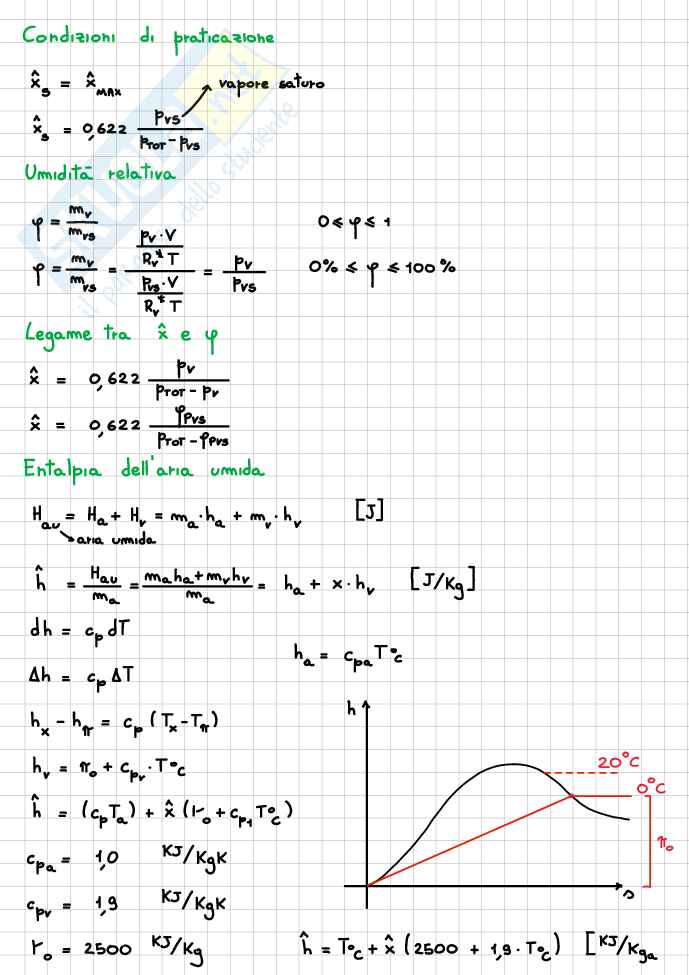 Condizioni di praticazione
x̂s = x̂MAX
vapore saturo
x̂s = 0,622 pvs / (pTOT - pvs)
Umidità relativa
φ = mv / mvs
0 ≤ φ ≤ 1
φ = mv / mvs = (pv · V / Rv* T) / (pvs · V / Rv* T) = pv / pvs
0% ≤ φ ≤ 100%
Legame tra x̂ e φ
x̂ = 0,622 pv / (pTOT - pv)
x̂ = 0,622 φpvs / (pTOT - φpvs)
Entalpia dell'aria umida
Hau = Ha + Hv = ma · ha + mv · hv [J]
aria umida
ĥ = Hau / ma = (maha + mvhv) / ma = ha + x · hv [J/Kg]
dh = cp dT
ha = cpa T°c
Δh = cp ΔT
hx - hπ = cp (Tx - Tπ)
hv = π0 + cpv · T°c
ĥ = (cpTa) + x̂ (r0 + cp1 T°c)
cpa = 1,0 KJ/KgK
cpv = 1,9 KJ/KgK
r0 = 2500 KJ/Kg
h
20°C
0°C
π0
s
ĥ = T°c + x̂ (2500 + 1,9 · T°c) [KJ/Kga